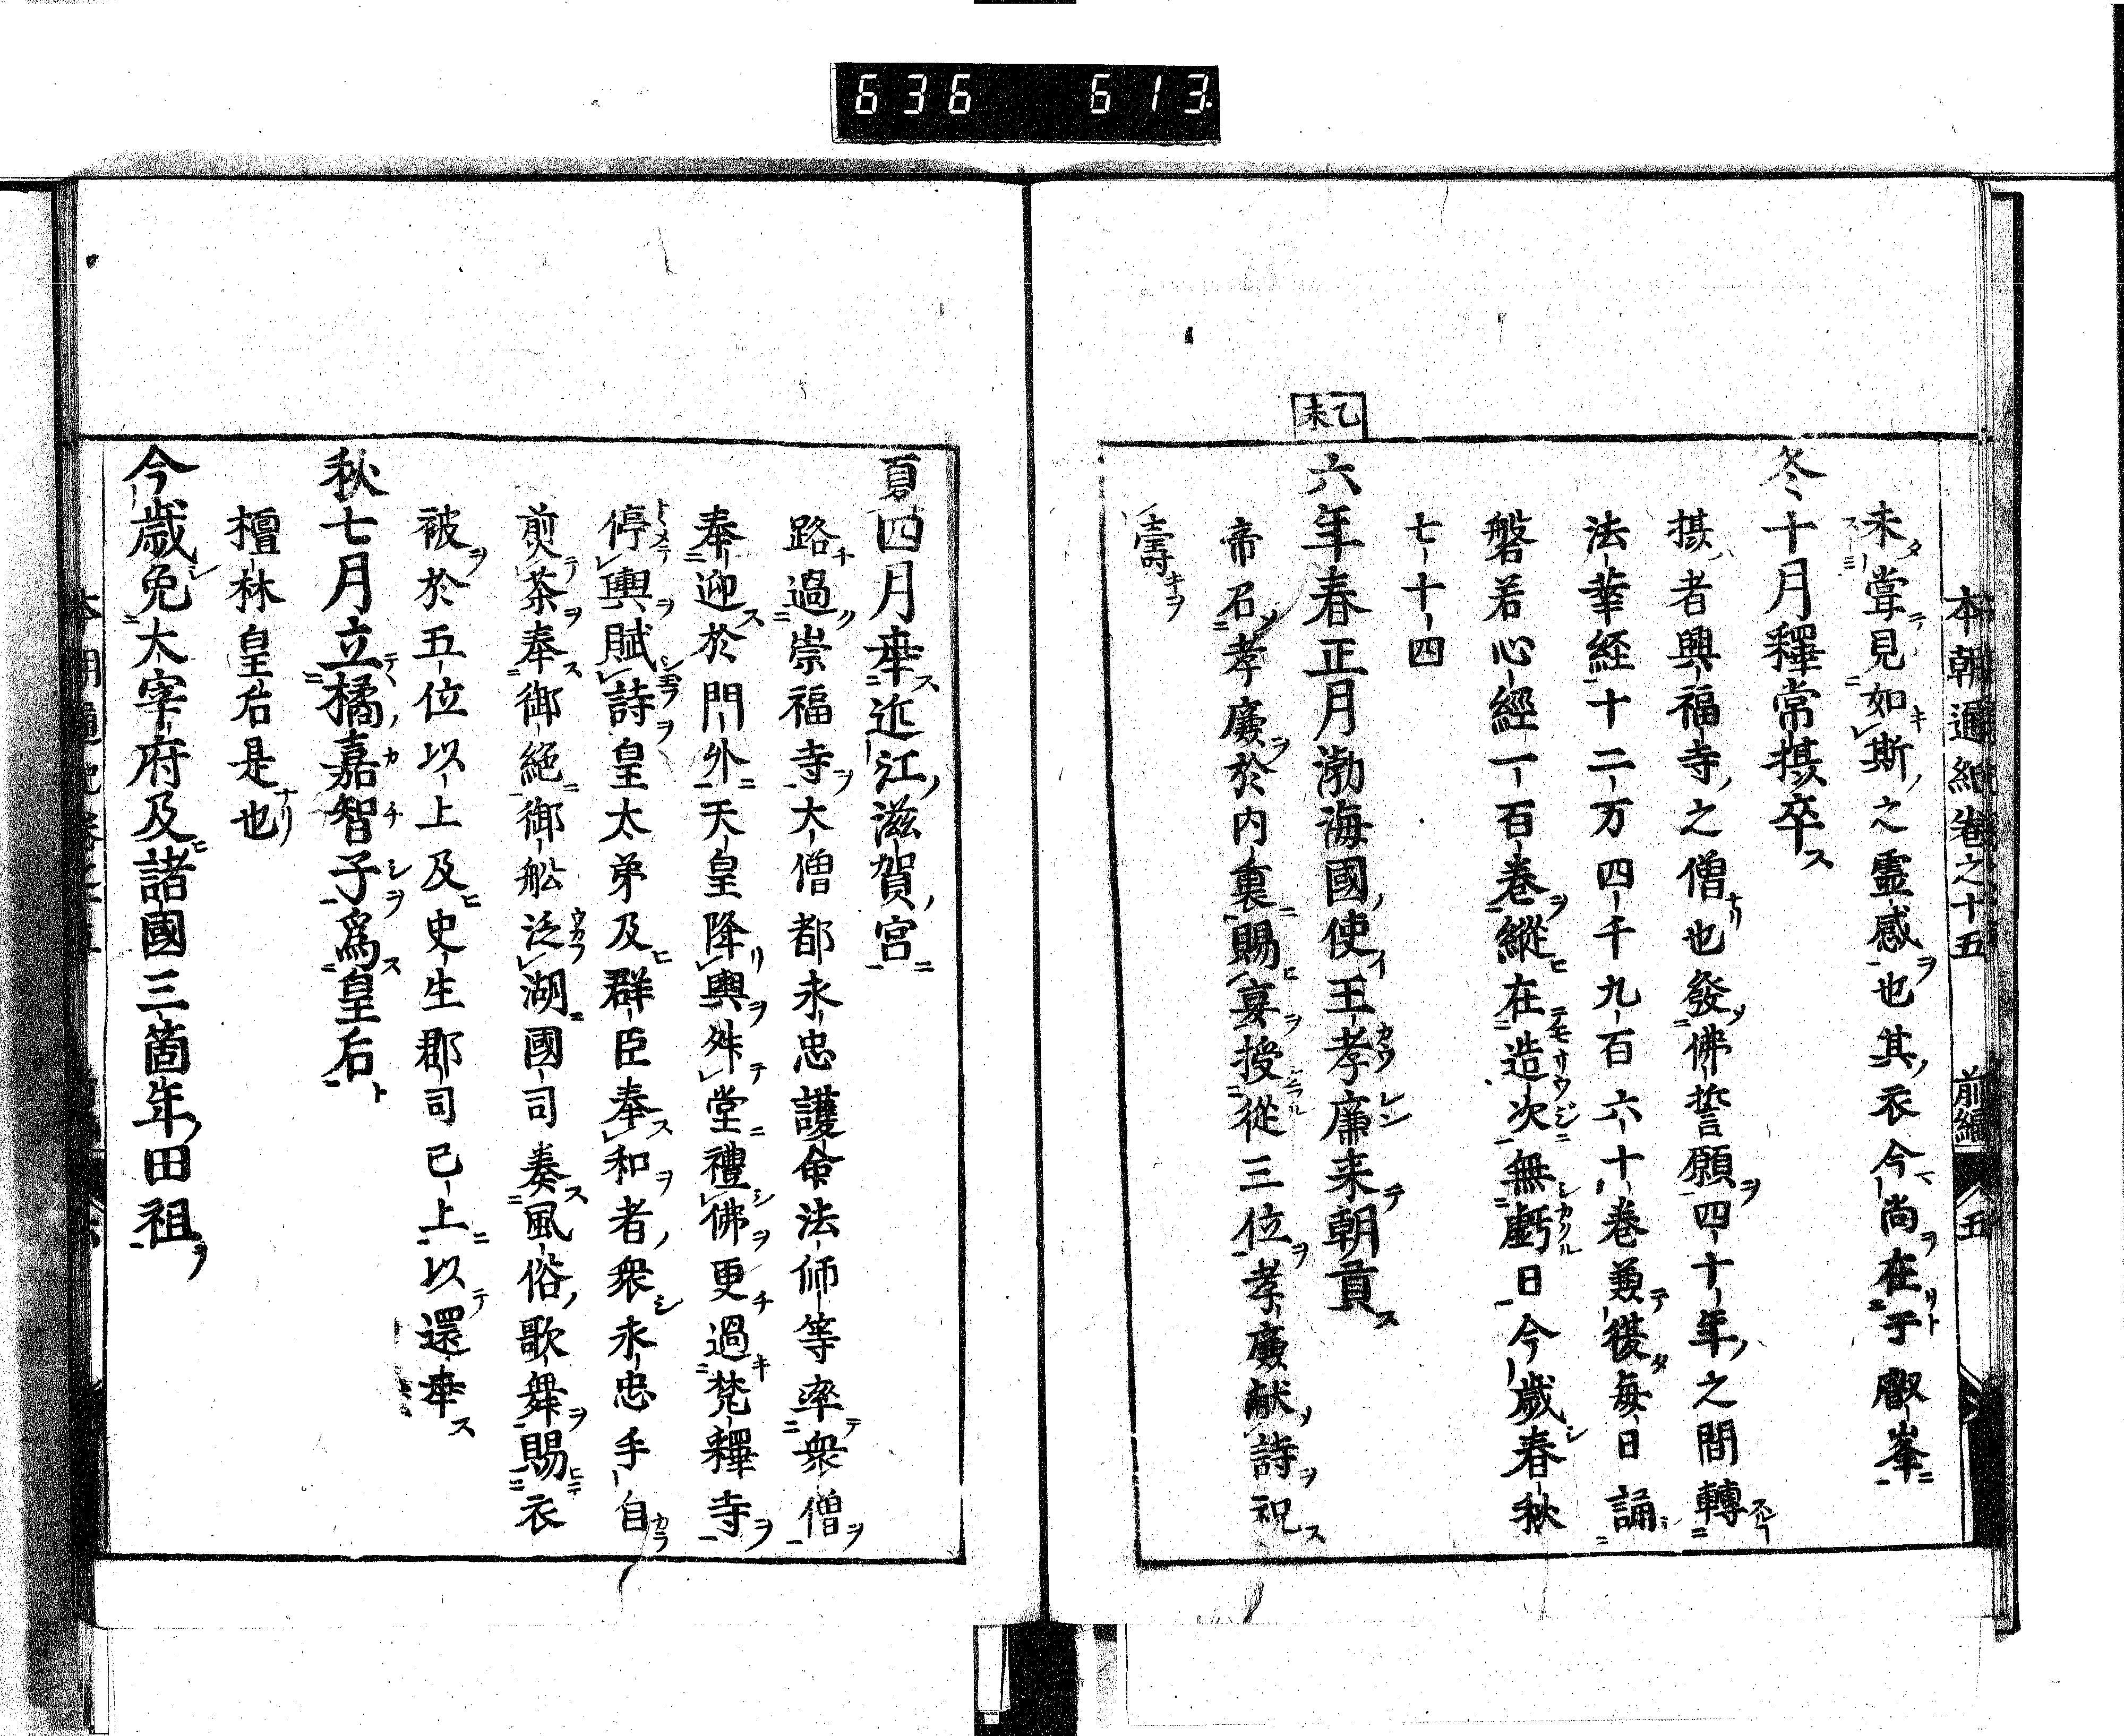 636 613.
本朝通紀卷之十五 前編 五
未嘗見如斯之靈感也其衣今尚在于叡峯
冬十月釋常樓卒
樓者興福寺之僧也發佛誓願四十年之間轉
法華経十二万四千九百六十巻兼復毎日誦
磐若心經一百巻縱在造次無虧日今歳春秋
七十四
乙未
六年春正月渤海國使王孝廉来朝貢
帝召孝廉於内裏賜宴授從三位孝廉献詩祝
壽
夏四月幸近江滋賀宮
路過崇福寺大僧都永忠護命法師等率衆僧
奉迎於門外天皇降輿舛堂禮佛更過梵釋寺
停輿賦詩皇太弟及群臣奉和者衆永忠手自
煎茶奉御絶御舩泛湖國司奏風俗歌舞賜衣
被於五位以上及史生郡司已上以還幸
秋七月立橘嘉智子爲皇后
檀林皇后是也
今歳免太宰府及諸國三箇年田祖